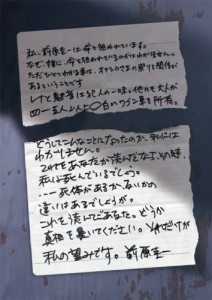 私、前原圭一は命を狙われています。
なぜ、誰に、命を狙われているのかはわかりません。
ただひとつわかる事は、オヤシロさまの祟りと関係が
あるということです。
レナと魅音は犯人の一味。他にも大人が
四〜五人以上。白のワゴン車を所有。
どうしてこんなことになったのか、私にはわ
かりません。
これをあなたが読んだなら、その時、
私は死んでいるでしょう。
…死体があるか、ないかの
違いはあるでしょうが。
これを読んだあなた。どうか
真相を暴いてください。それだけが
私の望みです。 前原圭一